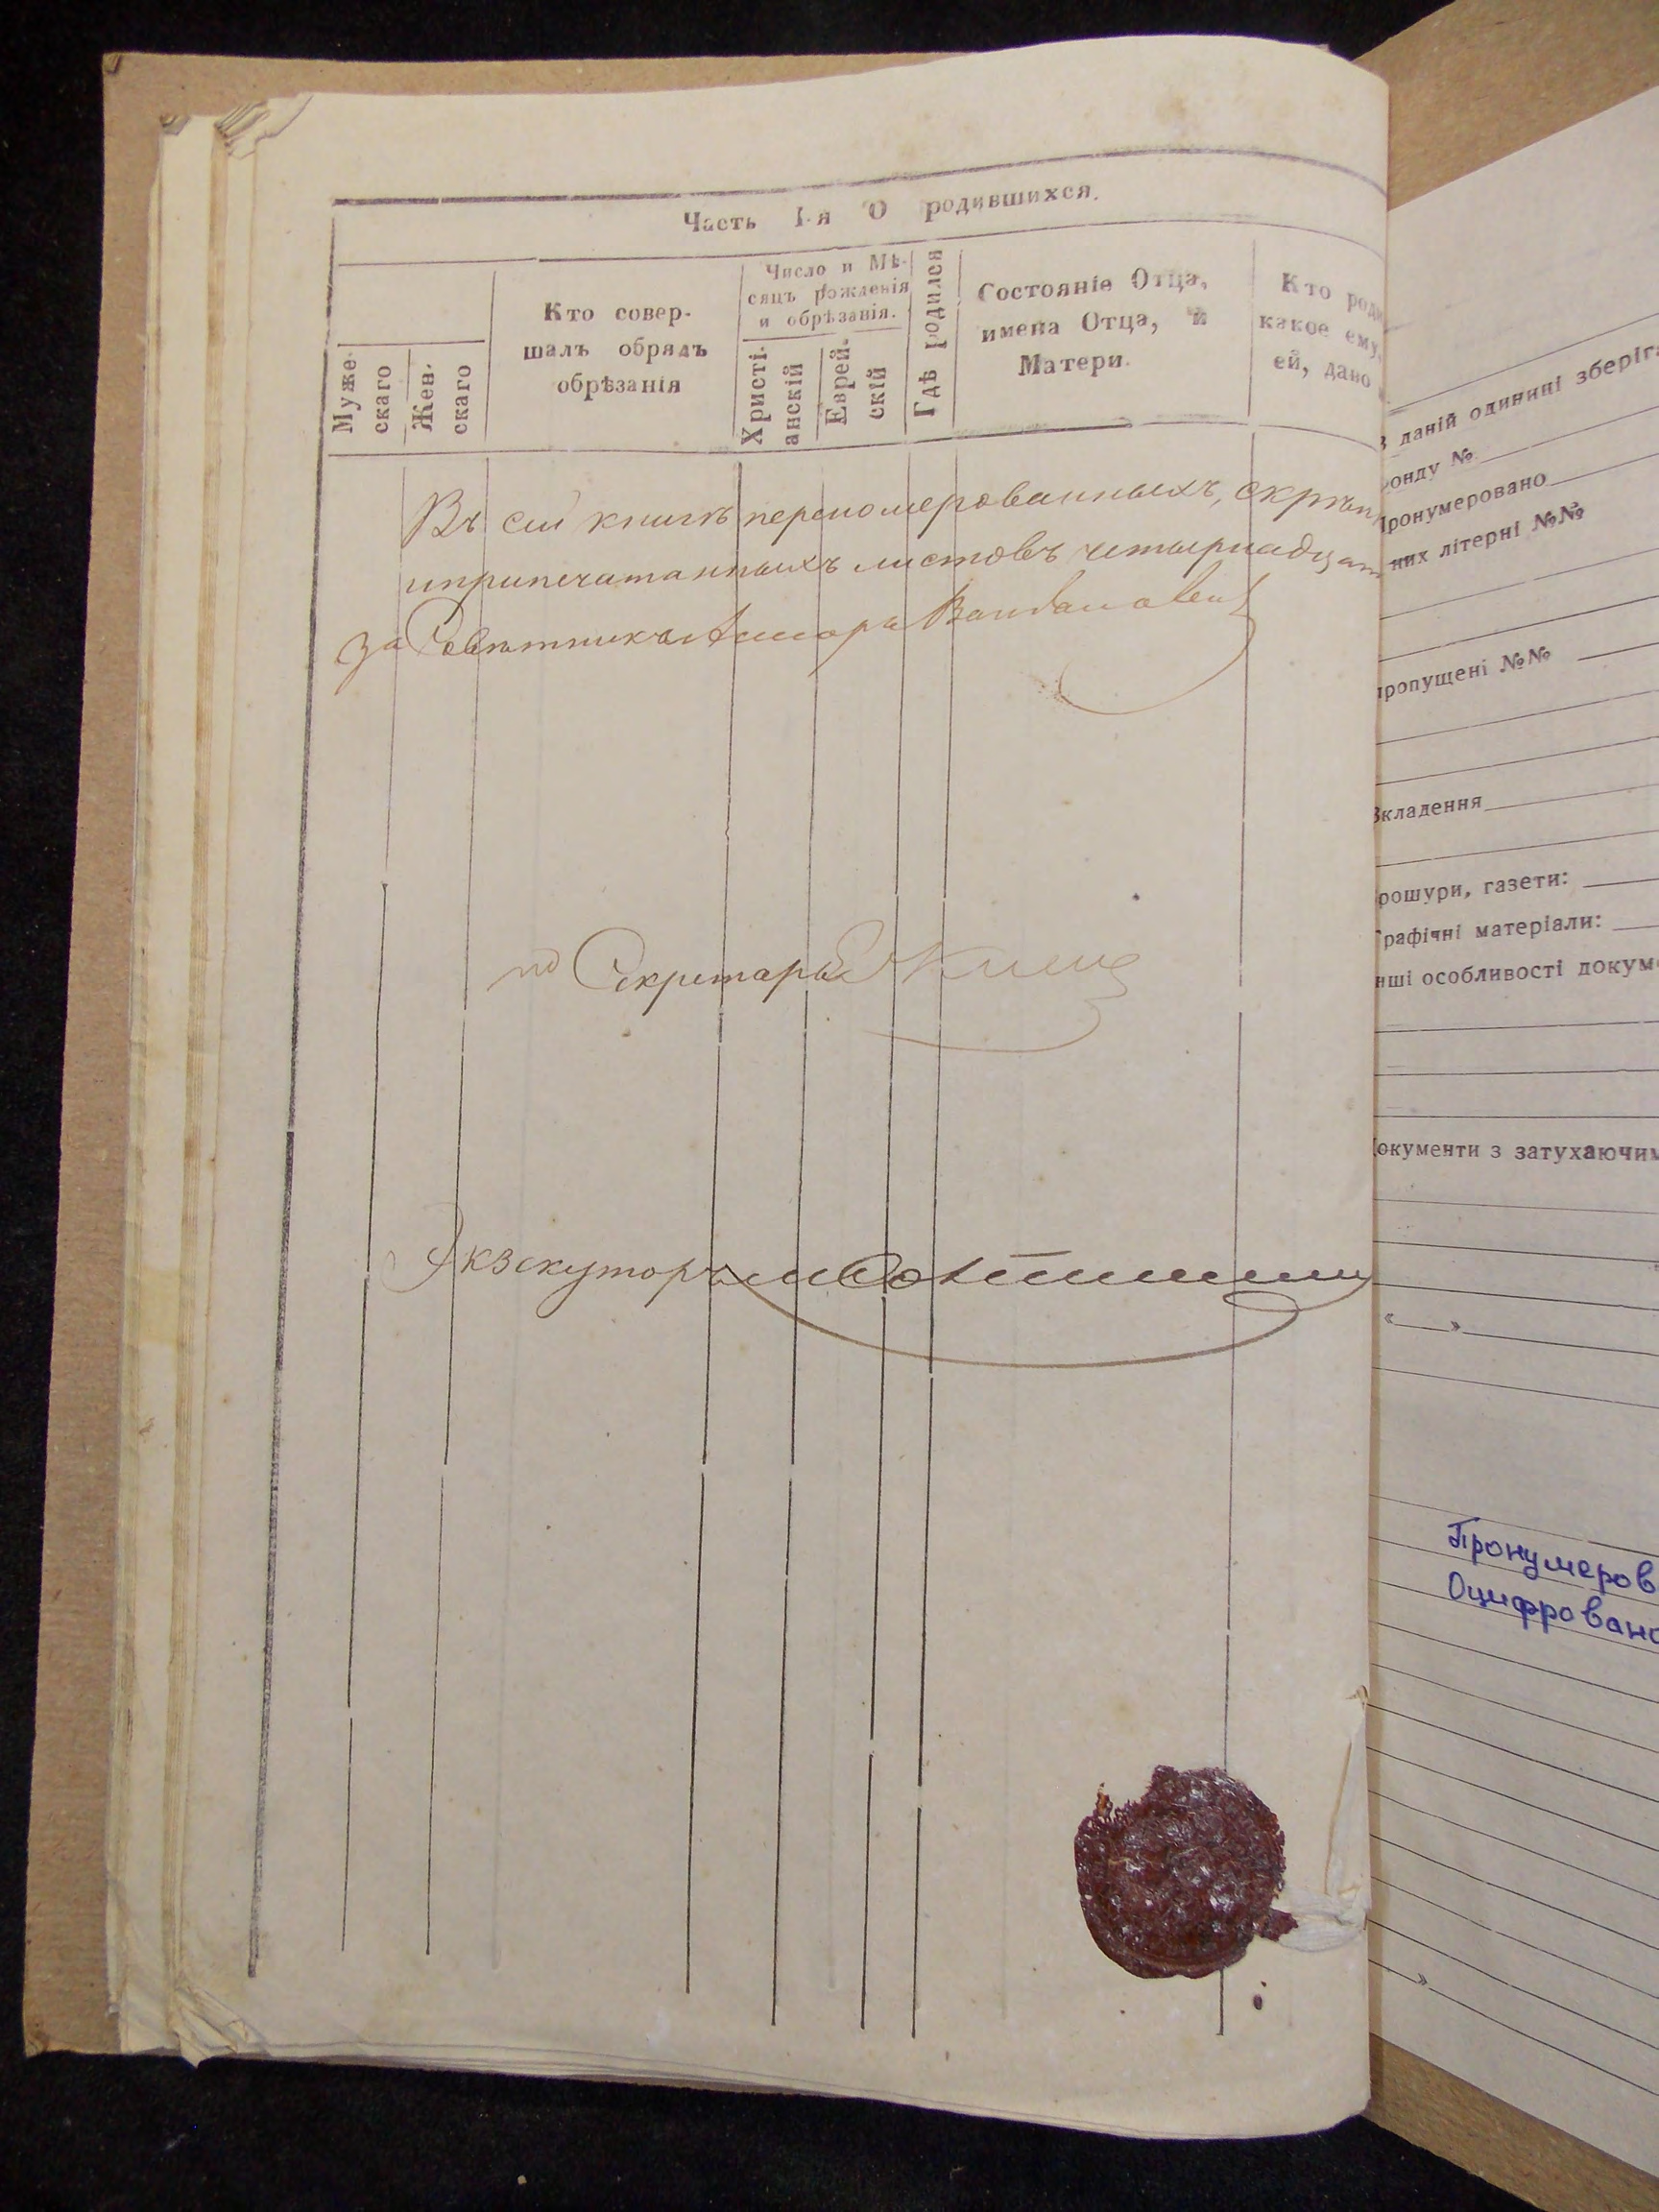 Часть I-я О родившихся.
Муже-
скаго
Жен-
скаго
Кто совер-
шалъ обрядъ
обрѣзанія
Число и Мѣ-
сяцъ рожденія
и обрѣзанія.
Христі-
анскій
Еврей-
скій
Гдѣ родился
Состояніе Отца,
имена Отца, и
Матери.
Кто роди
какое ему,
ей, дано
Въ сей книгѣ перномерованныхъ, скрѣп
иприпечатанныхъ листовъ четырнадцат
за Совѣтника
Секретарь
Экзекуторъ
в даній одиниці зберіга
фонду №
Пронумеровано
них літерні №№
пропущені №№
Вкладення
рошури, газети:
Графічні матеріали:
нші особливості докум
окументи з затухаючим
« »
Пронумеров
Оцифрован
»